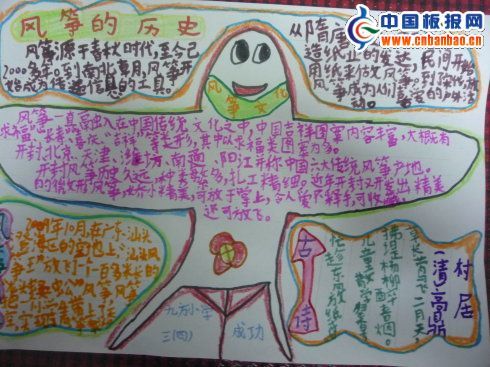 中国板报网
www.cnbanbao.cn
风筝的历史
风筝源于春秋时代,至今已
2000多年。到南北朝,风筝开
始成为传递信息的工具。
从隋唐
造纸业的发达,民间开始
用纸来做风筝,
到了宋代,放
风筝成为人们喜爱的户外活
动。
风筝文化
风筝一直融入在中国传统文化之中,中国吉祥图案内容丰富,大概有
求福
长寿
喜庆
吉祥
等类形,其中以求福类图案为多。
开封、北京、天津、潍坊、南通、阳江并称中国六大传统风筝产地。
开封风筝历史久远,种类繁多,扎工精细。近年开封又开发出精美
的微型风筝,娇小精美,可放于掌上,令人爱不释手,可收藏,
还可放飞。
2009年10月在广东汕头
空地上
汕头
风筝
放飞
一百多米长的
风筝
村居
(清)高鼎
草长莺飞二月天,
拂堤杨柳醉春烟。
儿童散学归来早,
忙趁东风放纸鸢。
古诗
九方小学
三(四)
成功